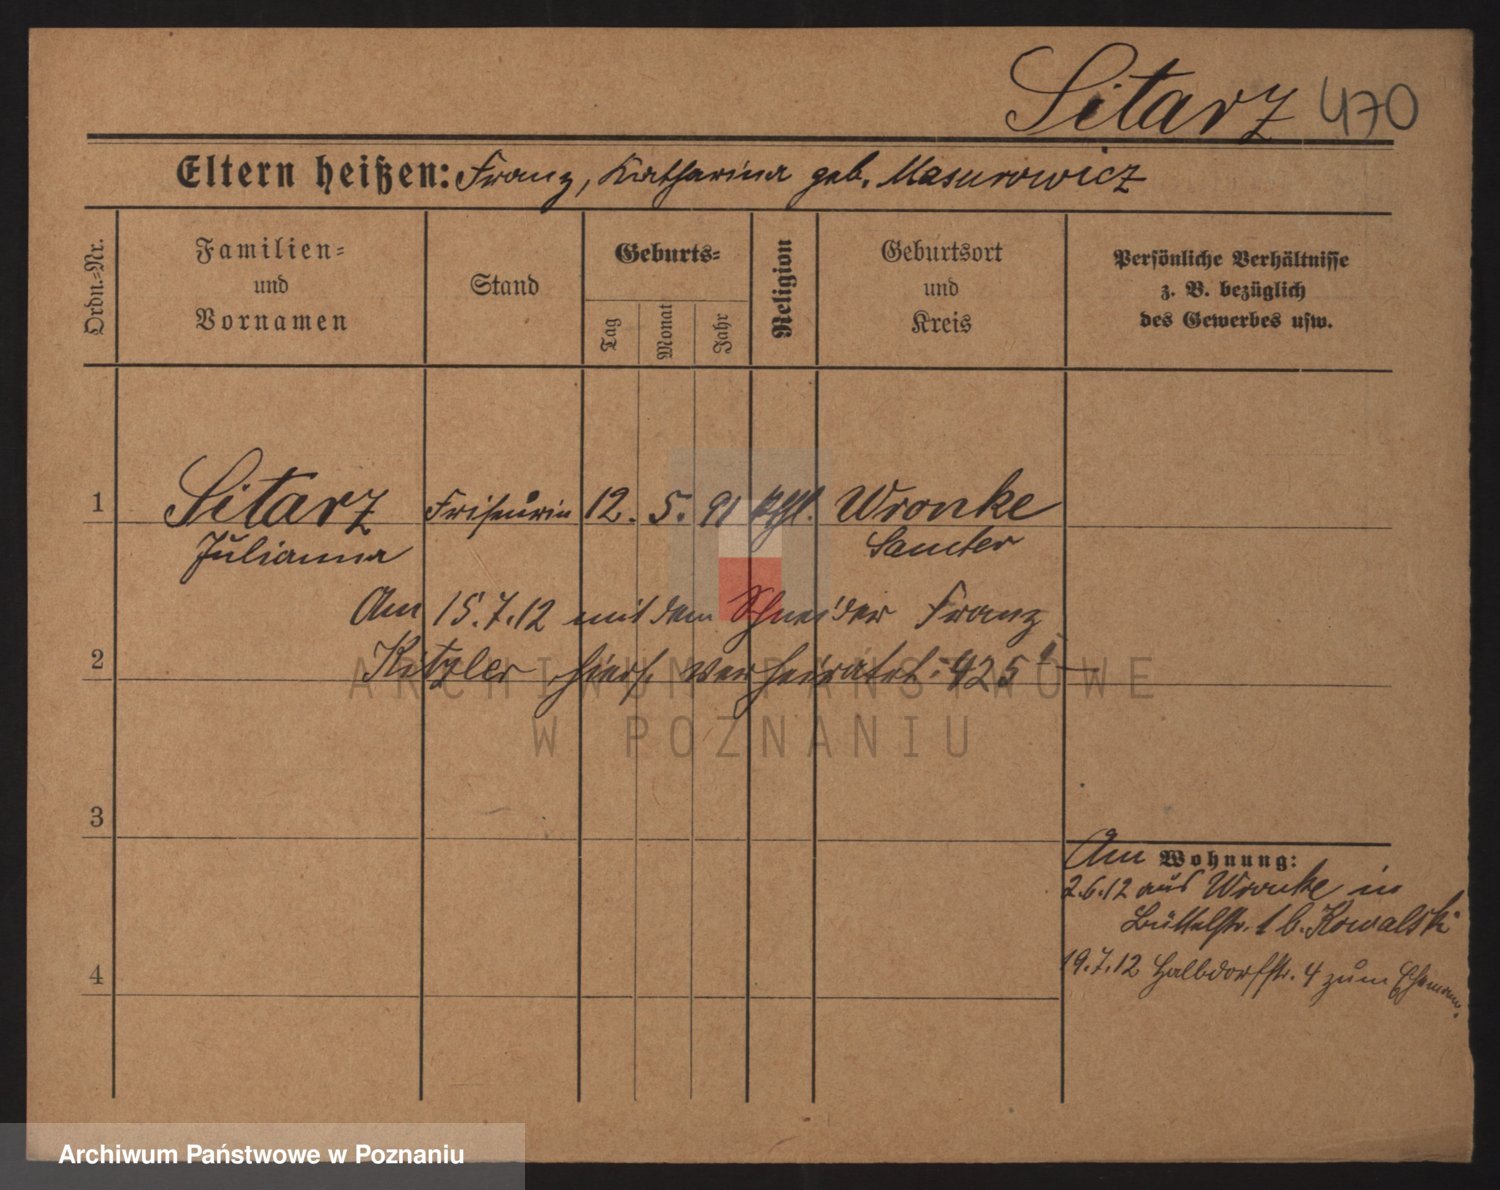 Sitarz 470
Eltern heißen: Franz, Katharina geb. Masurowicz
Ordn.-Nr.
Familien-
und
Vornamen
Stand
Geburts-
Tag
Monat
Jahr
Religion
Geburtsort
und
Kreis
Persönliche Verhältnisse
z. B. bezüglich
des Gewerbes usw.
1 Sitarz Friseurin 12. 5. 91 kthl. Wronke
Julianna Samter
Am 15.7.12 mit dem Schneider Franz
2 Kitzler hiers. verheiratet. 425
ARCHIWUM PAŃSTWOWE
W POZNANIU
3
Am Wohnung:
2.6.12 aus Wronke in
Büttelstr. 1 b. Kowalski
4
19.7.12 Halbdorfstr. 4 zum Ehemann.
Archiwum Państwowe w Poznaniu